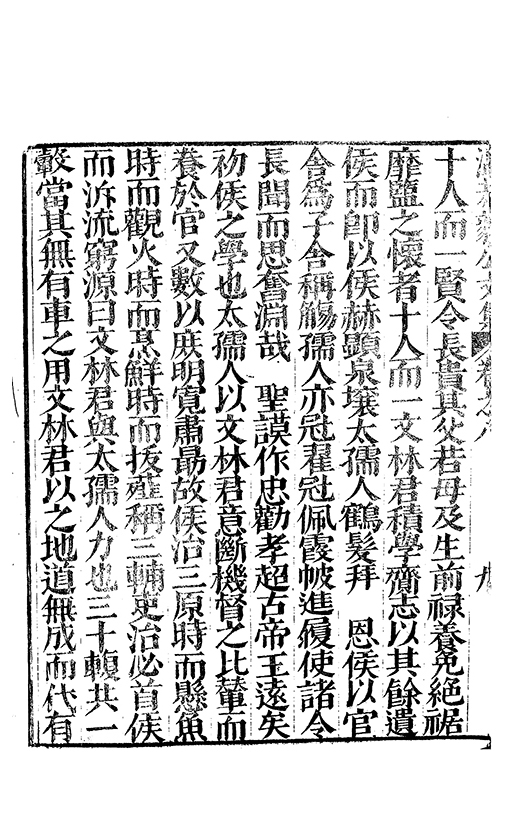 十人而一賢令長貴其父若母及生前祿養免絕裾
靡盬之懷者十人而一文林君積學齎志以其餘遺
侯而卽以侯赫顯泉壤太孺人鶴髮拜　恩侯以官
舍爲子舍稱觴孺人亦冠翟冠佩霞帔進履使諸令
長聞而思奮淵哉　聖謨作忠勸孝超古帝王遠矣
初侯之學也太孺人以文林君意斷機督之比輦而
養於官又數以庶明寬肅勗故侯治三原時而懸魚
時而觀火時而烹鮮時而拔薤稱三輔吏治必首侯
而泝流窮源曰文林君與太孺人力也三十輻共一
轂當其無有車之用文林君以之地道無成而代有
文集　卷之八　九